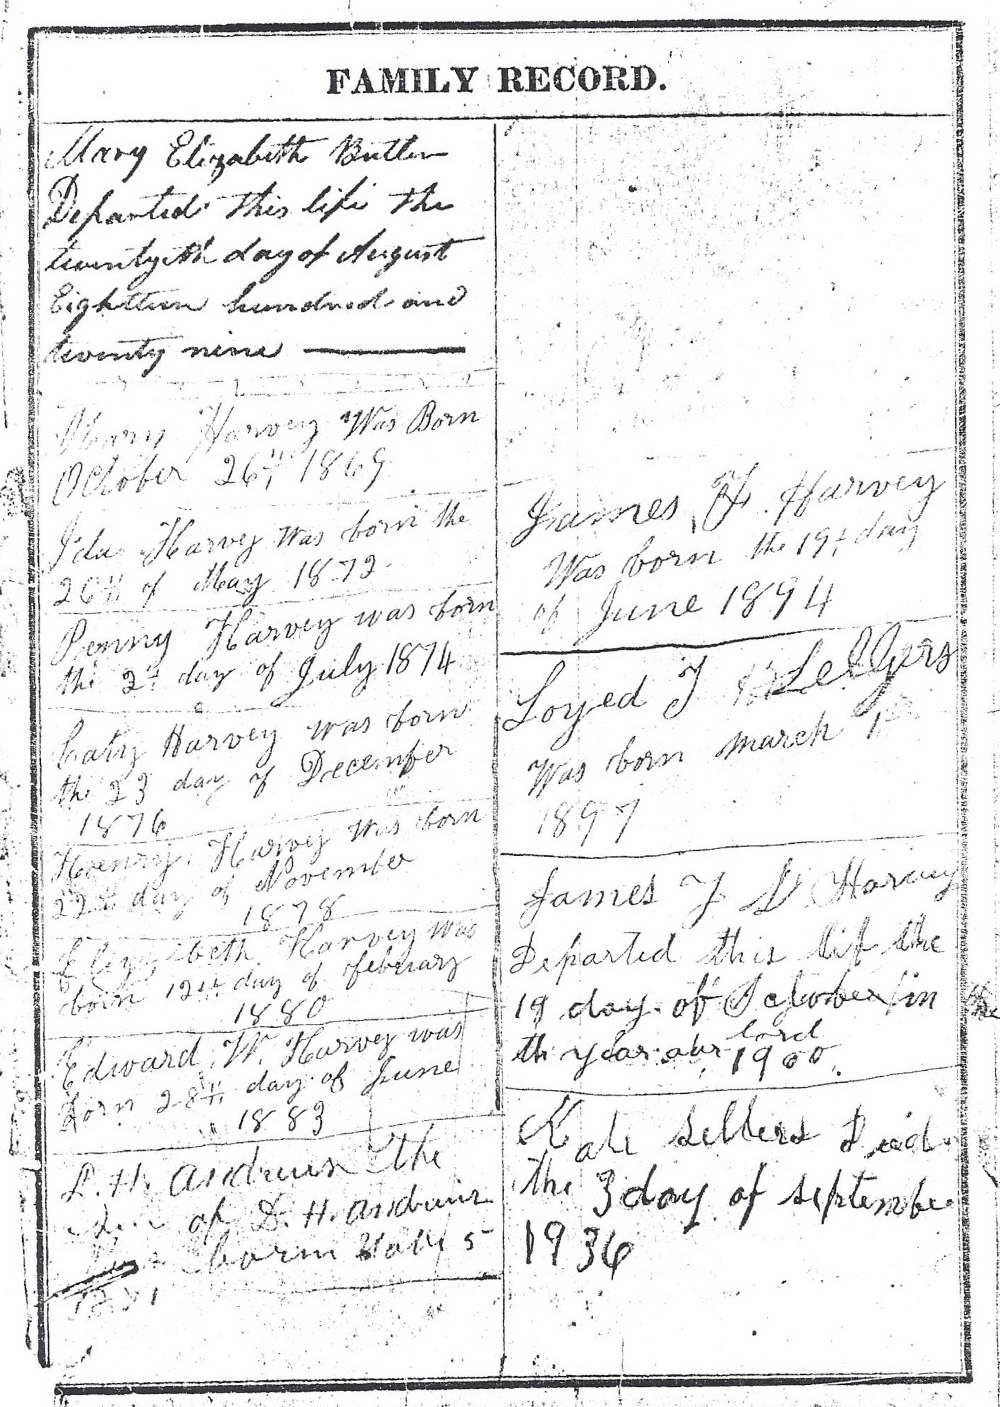 FAMILY RECORD.
Mary Elizabeth Butler
Departed this life the
twentyeth day of August
Eighteen hundred and
twenty nine
Mary Harvey Was Born
October 26th 1869
Ida Harvey Was born the
26th of May 1872
Penny Harvey was born
the 2d day of July 1874
Caty Harvey was born
the 23 day of December
1876
Henry Harvey Was born
22d day of November
1878
Elizabeth Harvey Was
born 12th day of February
1880
Edward W. Harvey was
born 28th day of June
1883
D. H. Andrews the
of D. H. Andrews
born 5
James H. Harvey
Was born the 19t day
of June 1894
Loyed J Sellers
Was born march 1
1897
James J Harvey
Departed this lif the
19 day of October in
the year our lord
1900.
Kate Sellers Died
the 3 day of septembe
1936